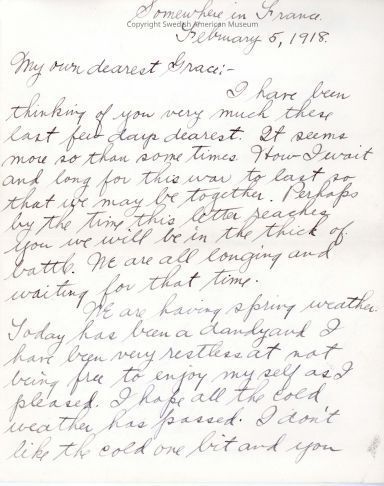 Somewhere in France.
Copyright Swedish American Museum
February 5, 1918.
My own dearest Grace:-
I have been
thinking of you very much these
last few days dearest. It seems
more so than some times. How I wait
and long for this war to last so
that we may be together. Perhaps
by the time this letter reaches
you we will be in the thick of
battle. We are all longing and
waiting for that time.
We are having spring weather.
Today has been a dandy and I
have been very restless at not
being free to enjoy my self as I
pleased. I hope all the cold
weather has passed. I don't
like the cold one bit and you